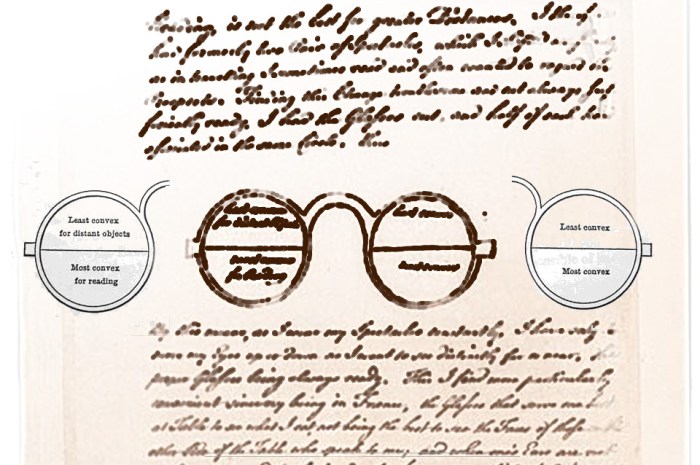 Reading, is not the best for greater Distances. I
had formerly two Pair of Spectacles, which I shifted
as in travelling I sometimes read and often wanted to regard the
Prospects. Finding this Change troublesome and not always suf
ficiently ready, I had the Glasses cut, and half of each kind
associated in the same Circle. thus
Least convex
for distant objects
Most convex
for reading
least convex
for distant objects
most convex
for Reading
least convex
most convex
Least convex
Most convex
By this means, as I wear my Spectacles constantly, I have only to
move my Eyes up or down as I want to see distinctly far or near, the
proper Glasses being always ready. This I find more particularly
convenient since my being in France, the Glasses that serve me best
at Table to see what I eat not being the best to see the Faces of those on the
other Side of the Table who speak to me; and when one's Ears are not